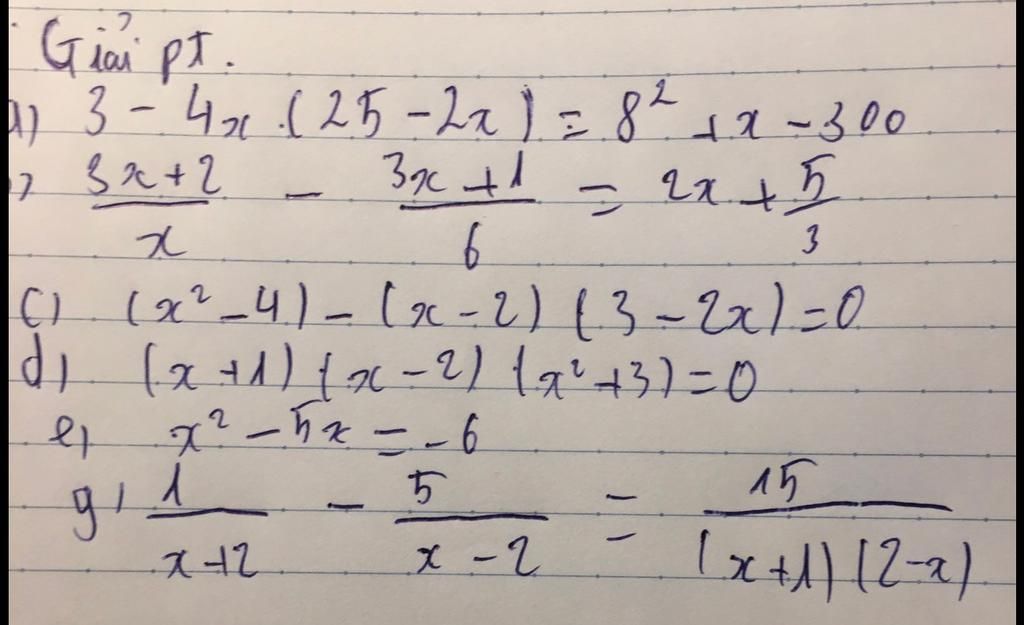 Giải pt.
a) 3 - 4x.(25 - 2x) = 8² + x - 300
(3x+2)/x - (3x+1)/6 = 2x + 5/3
c) (x² - 4) - (x - 2)(3 - 2x) = 0
d) (x + 1)(x - 2)(x² + 3) = 0
e) x² - 5x = -6
g) 1/(x+2) - 5/(x-2) = 15/((x+1)(2-x))